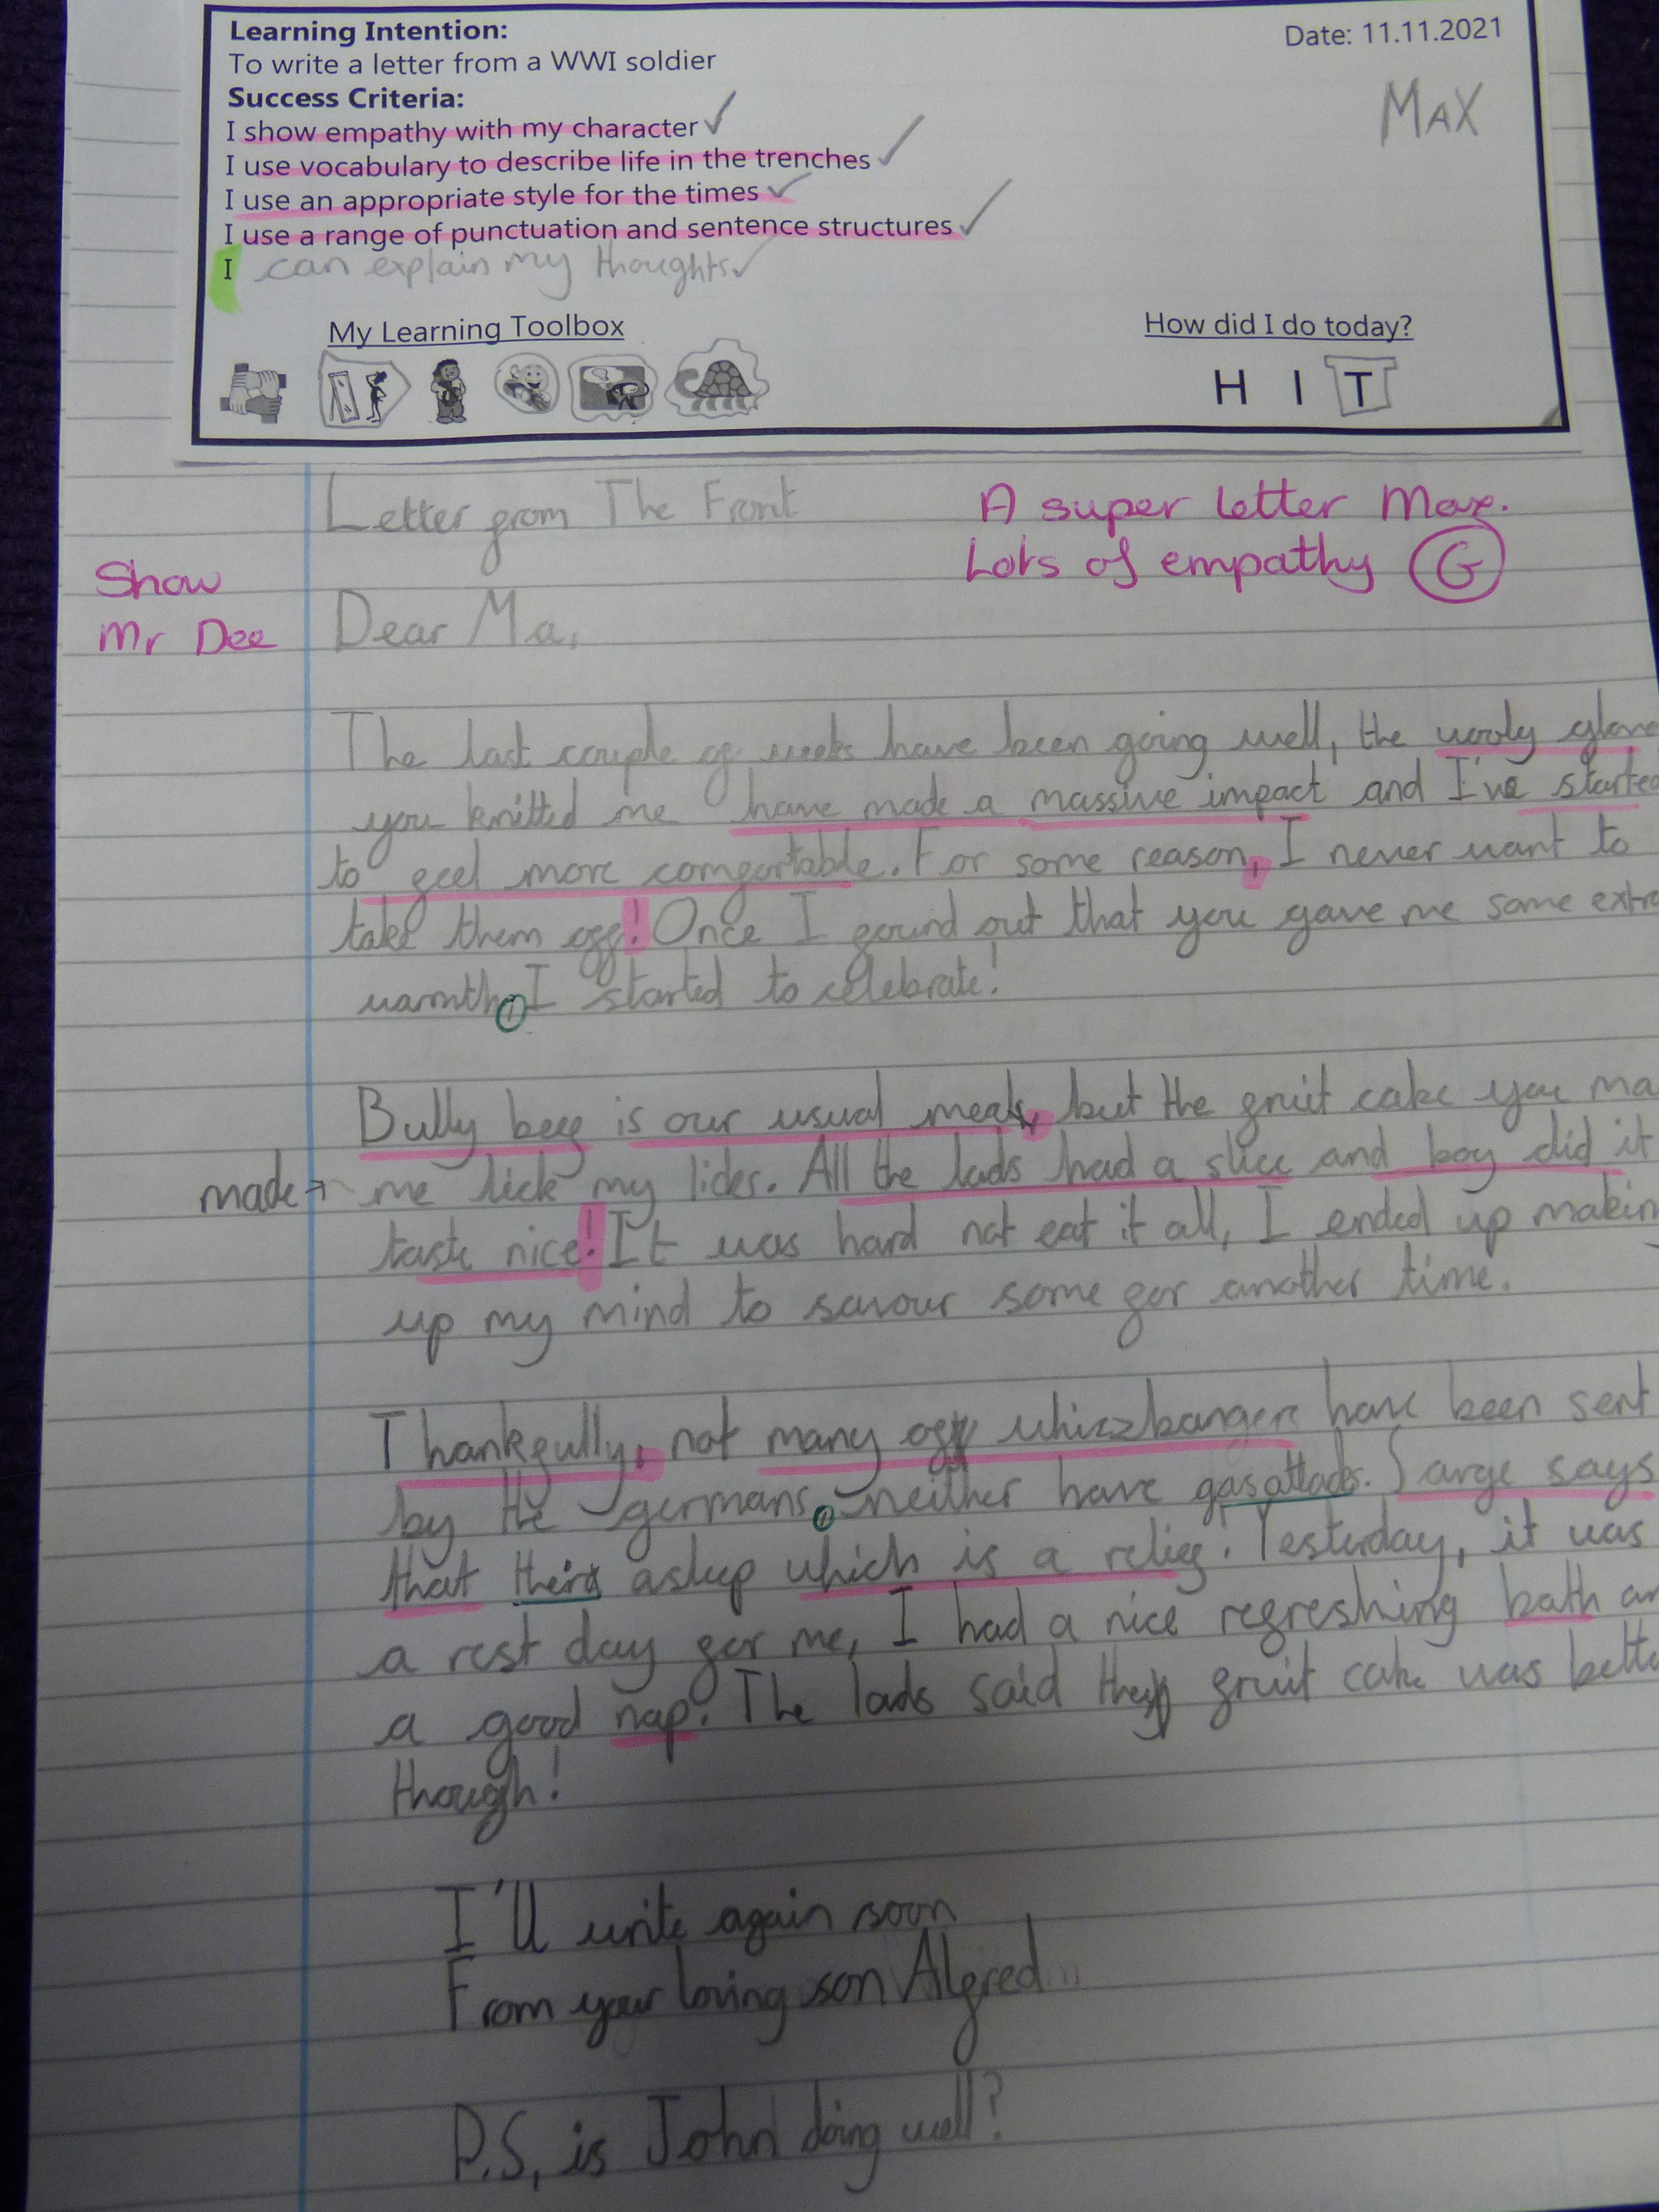 Learning Intention:
Date: 11.11.2021
To write a letter from a WWI soldier
MAX
Success Criteria:
I show empathy with my character
I use vocabulary to describe life in the trenches
I use an appropriate style for the times
I use a range of punctuation and sentence structures
I can explain my thoughts
My Learning Toolbox
How did I do today?
H I T
Letter from The Front
A super letter Max.
Lots of empathy G
Show
Mr Dee
Dear Ma,
The last couple of weeks have been going well, the wooly glove
you knitted me have made a massive impact and I've started
to feel more comfortable. For some reason, I never want to
take them off! Once I found out that you gave me some extra
warmth, I started to celebrate!
Bully beef is our usual meal, but the fruit cake you ma
made → me lick my lides. All the lads had a slice and boy did it
taste nice! It was hard not eat it all, I ended up makin
up my mind to savour some for another time.
Thankfully, not many of whizzbangers have been sent
by the germans, neither have gas attacks. Sarge says
that their asleep which is a relief! Yesterday, it was
a rest day for me, I had a nice refreshing bath an
a good nap. The lads said the fruit cake was bette
though!
I'll write again soon
From your loving son Alfred
P.S, is John doing well?